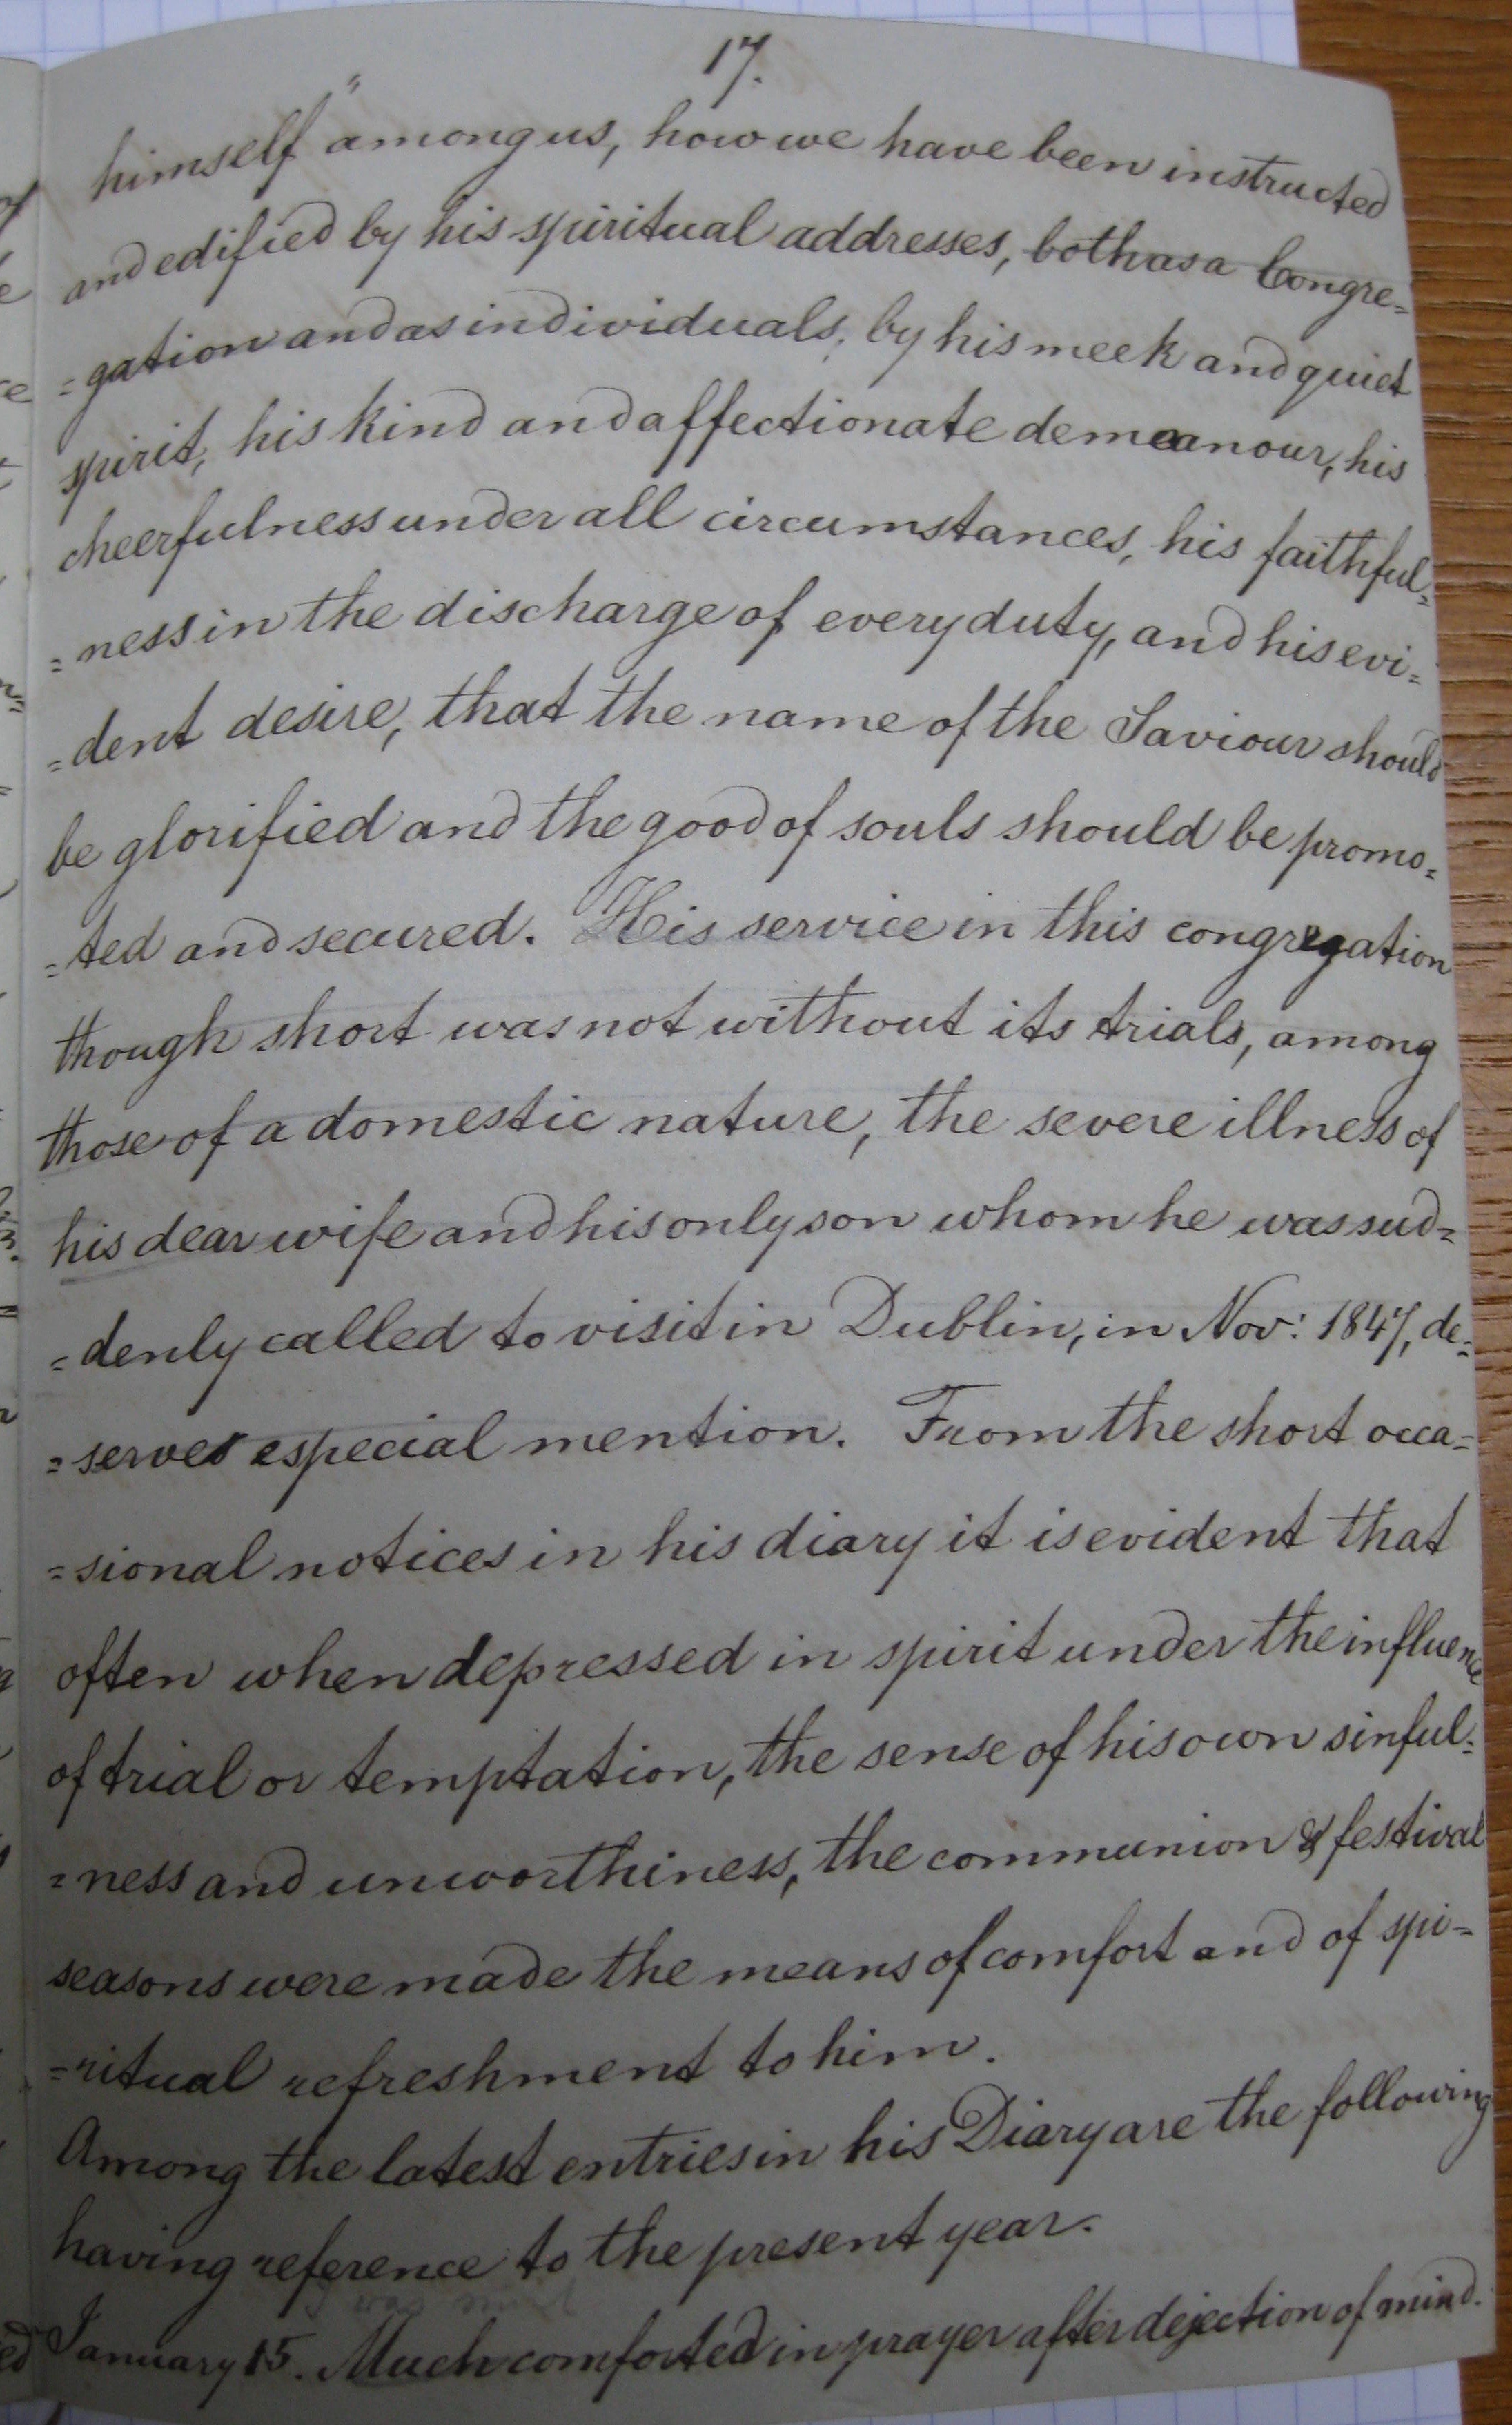 17.
himself" among us, how we have been instructed
and edified by his spiritual addresses, both as a Congre=
=gation and as individuals, by his meek and quiet
spirit, his kind and affectionate demeanour, his
cheerfulness under all circumstances, his faithful=
=ness in the discharge of every duty, and his evi=
=dent desire, that the name of the Saviour should
be glorified and the good of souls should be promo=
=ted and secured. His service in this congregation
though short was not without its trials, among
those of a domestic nature, the severe illness of
his dear wife and his only son whom he was sud=
=denly called to visit in Dublin, in Nov: 1847, de=
=serves especial mention. From the short occa=
=sional notices in his diary it is evident that
often when depressed in spirit under the influence
of trial or temptation, the sense of his own sinful=
=ness and unworthiness, the communion & festival
seasons were made the means of comfort and of spi=
=ritual refreshment to him.
Among the latest entries in his Diary are the following
having reference to the present year.
I was much
January 15. Much comforted in prayer after dejection of mind.